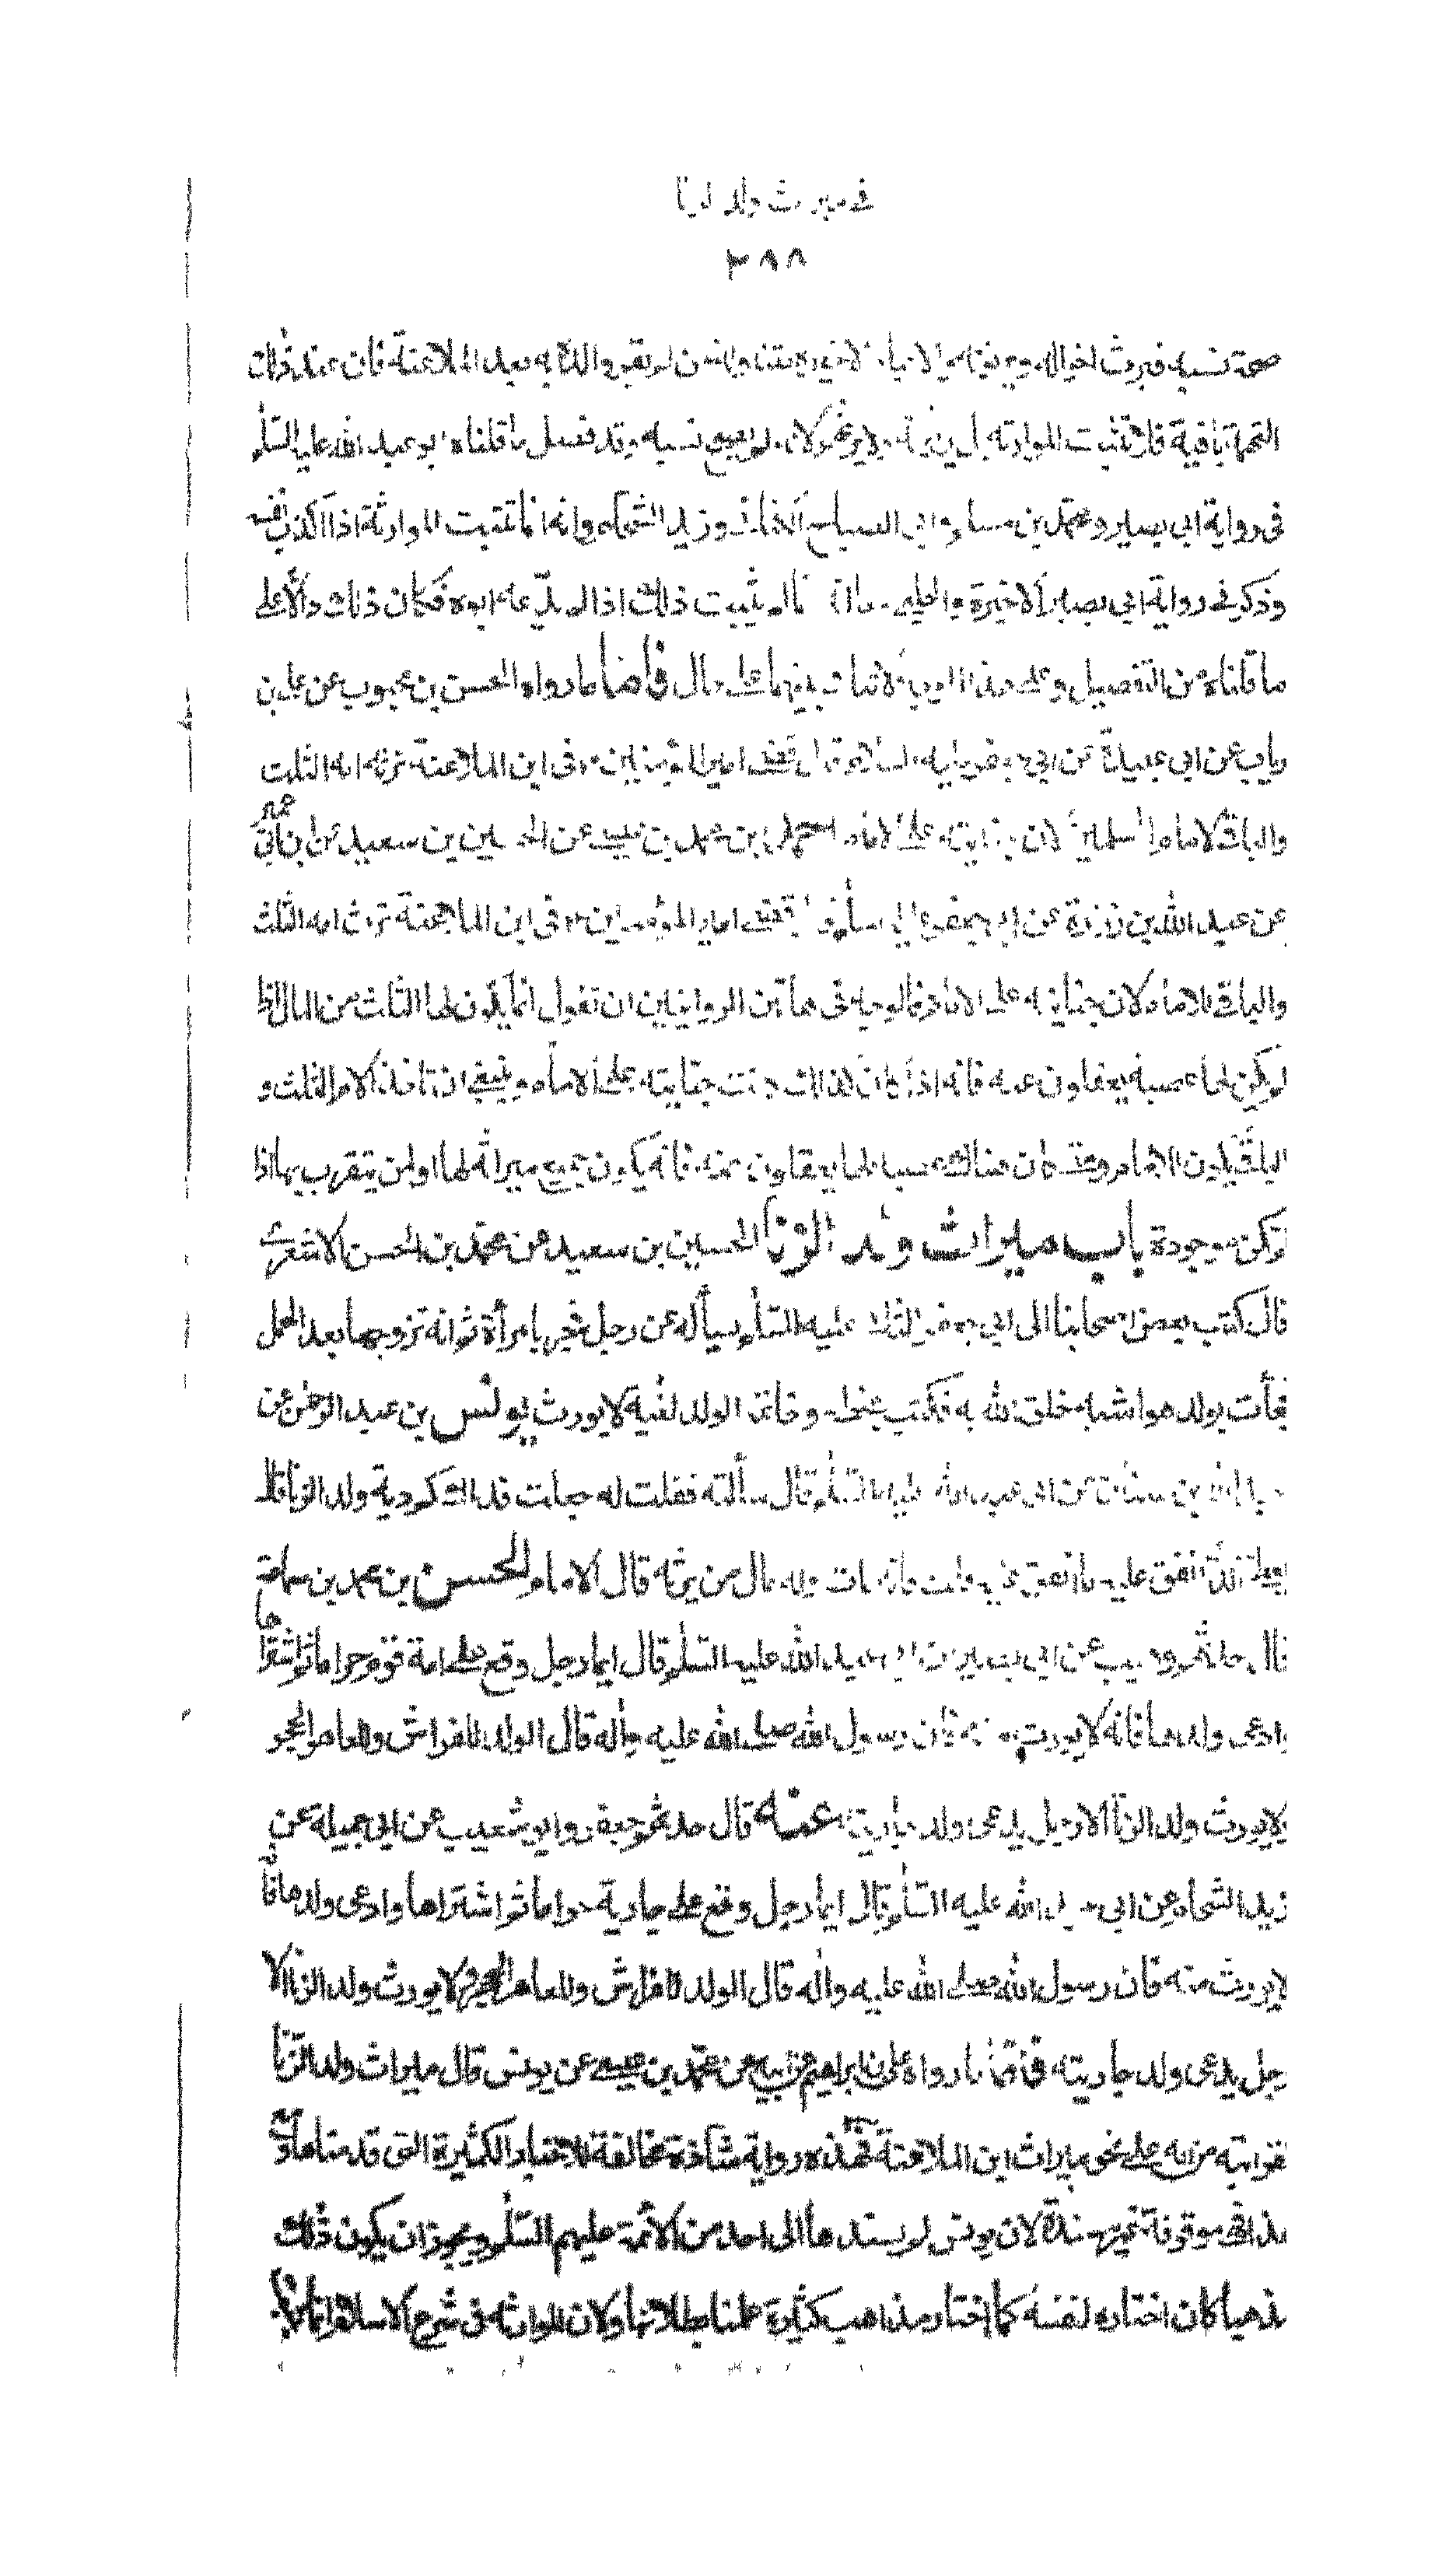 في ميراث ولد الزنا
٢٩٨
صحة نسبه فيرث اخواله ويرثونه والاخبار الاخيرة متناولة لمن لم يقر والده به بعد الملاعنة فان عند ذلك
التهمة باقية فلا تثبت الموارثة بل يرثونه ولا يرثهم لانه لم يصح نسبه وقد فصل ما قلناه ابو عبد الله عليه السلم
في رواية ابي بصير ومحمد بن مسلم وابي الصباح الكناني وزيد الشحام وانه انما تثبت الموارثة اذا اكذب نفسه
وذكر في رواية ابي بصير الاخيرة والحلبي معا انه انما لم يثبت ذلك اذا لم يدعه ابوه فكان ذلك دالا على
ما قلناه من التفصيل وعلى هذا الوجه لا تنافي بينهما على حال فاما ما رواه الحسن بن محبوب عن علي بن
رياب عن ابي عبيدة عن ابي جعفر عليه السلم قال قضى امير المؤمنين ع في ابن الملاعنة ترثه امه الثلث
والباقي لامام المسلمين لان جنايته على الامام احمد بن محمد بن عيسى عن الحسين بن سعيد عن ابن ابي عمير
عن عبد الله بن زرارة عن ابي جعفر عليه السلم قال قضى امير المؤمنين ع في ابن الملاعنة ترث امه الثلث
والباقي للامام لان جنايته على الامام فالوجه في هاتين الروايتين ان نقول انما يكون لها الثلث من المال اذا
لم يكن لها عصبة يعقلون عنه فانه اذا كان كذلك كانت جنايته على الامام وينبغي ان تاخذ الام الثلث و
الباقي يكون للامام ومتى كان هناك عصبة لها يعقلون عنه فانه يكون جميع ميراثه لها او لمن يتقرب بها اذا
لم تكن موجودة باب ميراث ولد الزنا الحسين بن سعيد عن محمد بن الحسن الاشعري
قال كتب بعض اصحابنا الى ابي جعفر الثاني عليه السلم يسأله عن رجل فجر بامرأة ثم انه تزوجها بعد الحمل
فجاءت بولد هو اشبه خلق الله به فكتب بخطه وخاتمه الولد لغية لا يورث يونس بن عبد الرحمن عن
عبد الله بن سنان عن ابي عبد الله عليه السلم قال سألته فقلت له جعلت فداك كم دية ولد الزنا قال
يعطى الذي انفق عليه ما انفق عليه قلت فانه مات وله مال من يرثه قال الامام الحسن بن محمد بن سماعة
قال حدثهم وهيب عن ابي بصير عن ابي عبد الله عليه السلم قال ايما رجل وقع على امة قوم حراما ثم اشتراها
وادعى ولدها فانه لا يورث منه فان رسول الله صلى الله عليه واله قال الولد للفراش وللعاهر الحجر
ولا يورث ولد الزنا الا رجل يدعى ولد جاريته عنه قال حدثهم جعفر وابو شعيب عن ابي جميلة عن
زيد الشحام عن ابي عبد الله عليه السلم قال ايما رجل وقع على جارية حراما ثم اشتراها وادعى ولدها فانه
لا يورث منه فان رسول الله صلى الله عليه واله قال الولد للفراش وللعاهر الحجر ولا يورث ولد الزنا الا
رجل يدعى ولد جاريته فاما ما رواه علي بن ابراهيم عن ابيه عن محمد بن عيسى عن يونس قال ميراث ولد الزنا
لقرابته من امه على نحو ميراث ابن الملاعنة فهذه رواية شاذة مخالفة للاخبار الكثيرة التي قدمناها ومع
هذا فهي موقوفة غير مسندة لان يونس لم يسندها الى احد من الائمة عليهم السلم ويجوز ان يكون ذلك
مذهبا كان اختاره لنفسه كما اختار مذاهب كثيرة علمنا بطلانها ولان الموارثة في شرع الاسلام انما